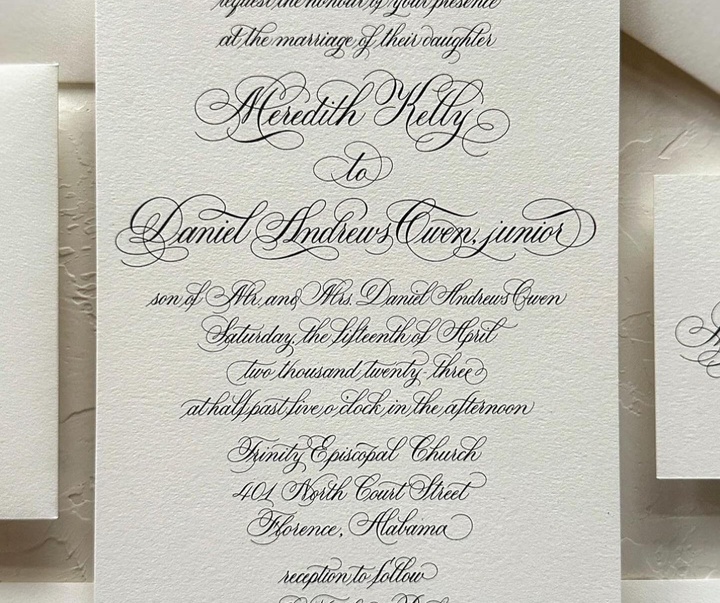 request the honour of your presence
at the marriage of their daughter
Meredith Kelly
to
Daniel Andrews Owen, junior
son of Mr. and Mrs. Daniel Andrews Owen
Saturday, the fifteenth of April
two thousand twenty-three
at half past five o'clock in the afternoon
Trinity Episcopal Church
401 North Court Street
Florence, Alabama
reception to follow